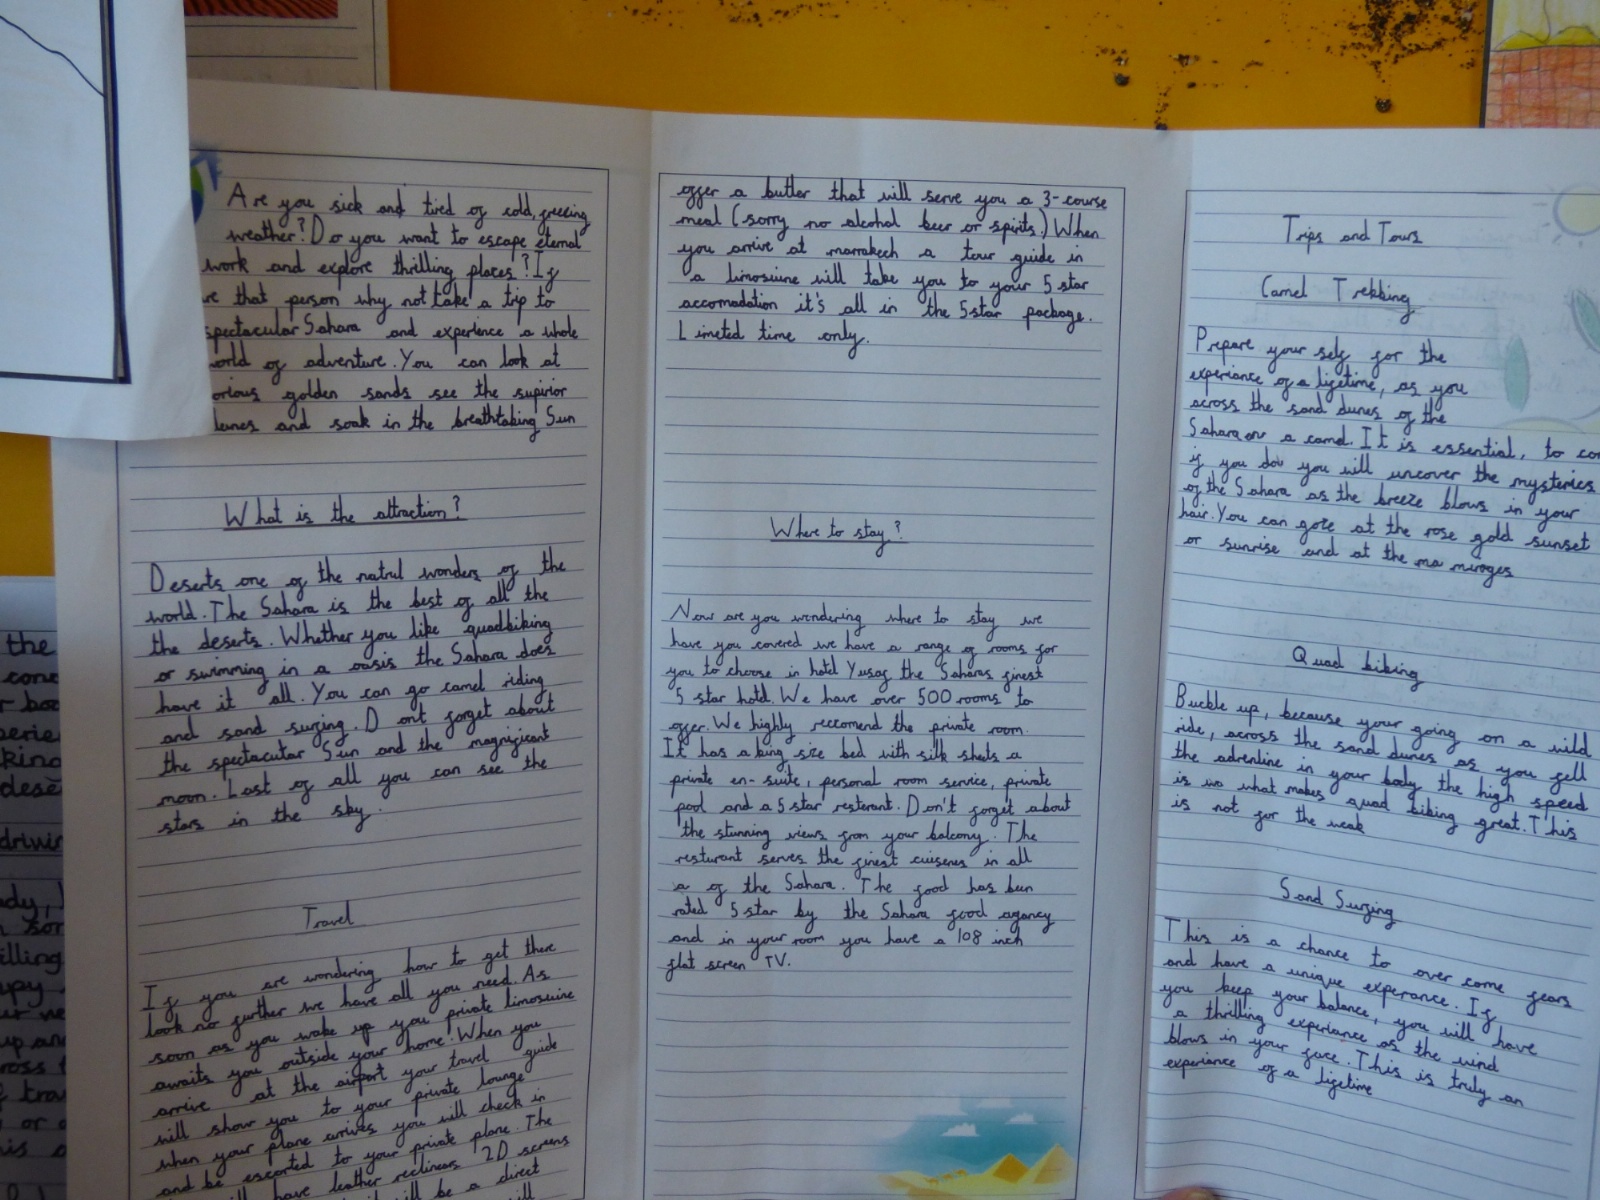 Are you sick and tired of cold, freezing
weather? Do you want to escape eternal
work and explore thrilling places? If
that person why not take a trip to
spectacular Sahara and experience a whole
world of adventure. You can look at
golden sands see the supirior
and soak in the breathtaking Sun
What is the attraction?
Deserts one of the natrul wonders of the
world. The Sahara is the best of all the
the deserts. Whether you like quadbiking
or swimming in a oasis the Sahara does
have it all. You can go camel riding
and sand surfing. Dont forget about
the spectacular Sun and the magnificant
moon. Last of all you can see the
stars in the sky.
Travel
If you are wondering how to get there
look no further we have all you need. As
soon as you wake up you private limosuine
awaits you outside your home. When you
arrive at the airport your travel guide
will show you to your private lounge
when your plane arrives you will check in
and be escorted to your private plane. The
have leather recliners 2D screens
will be a direct
offer a butler that will serve you a 3-course
meal (sorry no alcohol beer or spirits.) When
you arrive at marrakech a tour guide in
a limosuine will take you to your 5 star
accomadation it's all in the 5star package.
Limeted time only.
Where to stay?
Now are you wondering where to stay we
have you covered we have a range of rooms for
you to choose in hotel Yusaf the Saharas finest
5 star hotel. We have over 500 rooms to
offer. We highly reccomend the private room.
It has a king size bed with silk sheets a
private en-suite, personal room service, private
pool and a 5 star resterant. Don't forget about
the stunning views from your balcony. The
resturant serves the finest cuisenes in all
of the Sahara. The food has been
rated 5 star by the Sahara food agancy
and in your room you have a 108 inch
flat screen TV.
Trips and Tours
Camel Trekking
Prepare your self for the
experiance of a lifetime, as you
across the sand dunes of the
Sahara on a camel. It is essential, to
if you do you will uncover the mysteries
of the Sahara as the breeze blows in your
hair. You can gaze at the rose gold sunset
or sunrise and at the mirages
Quad biking
Buckle up, because your going on a wild
ride, across the sand dunes as you fell
the adrenline in your body the high speed
is what makes quad biking great. This
is not for the weak
Sand Surfing
This is a chance to over come fears
and have a unique experance. If
you keep your balance, you will have
a thrilling experiance as the wind
blows in your face. This is truly an
experiance of a lifetime